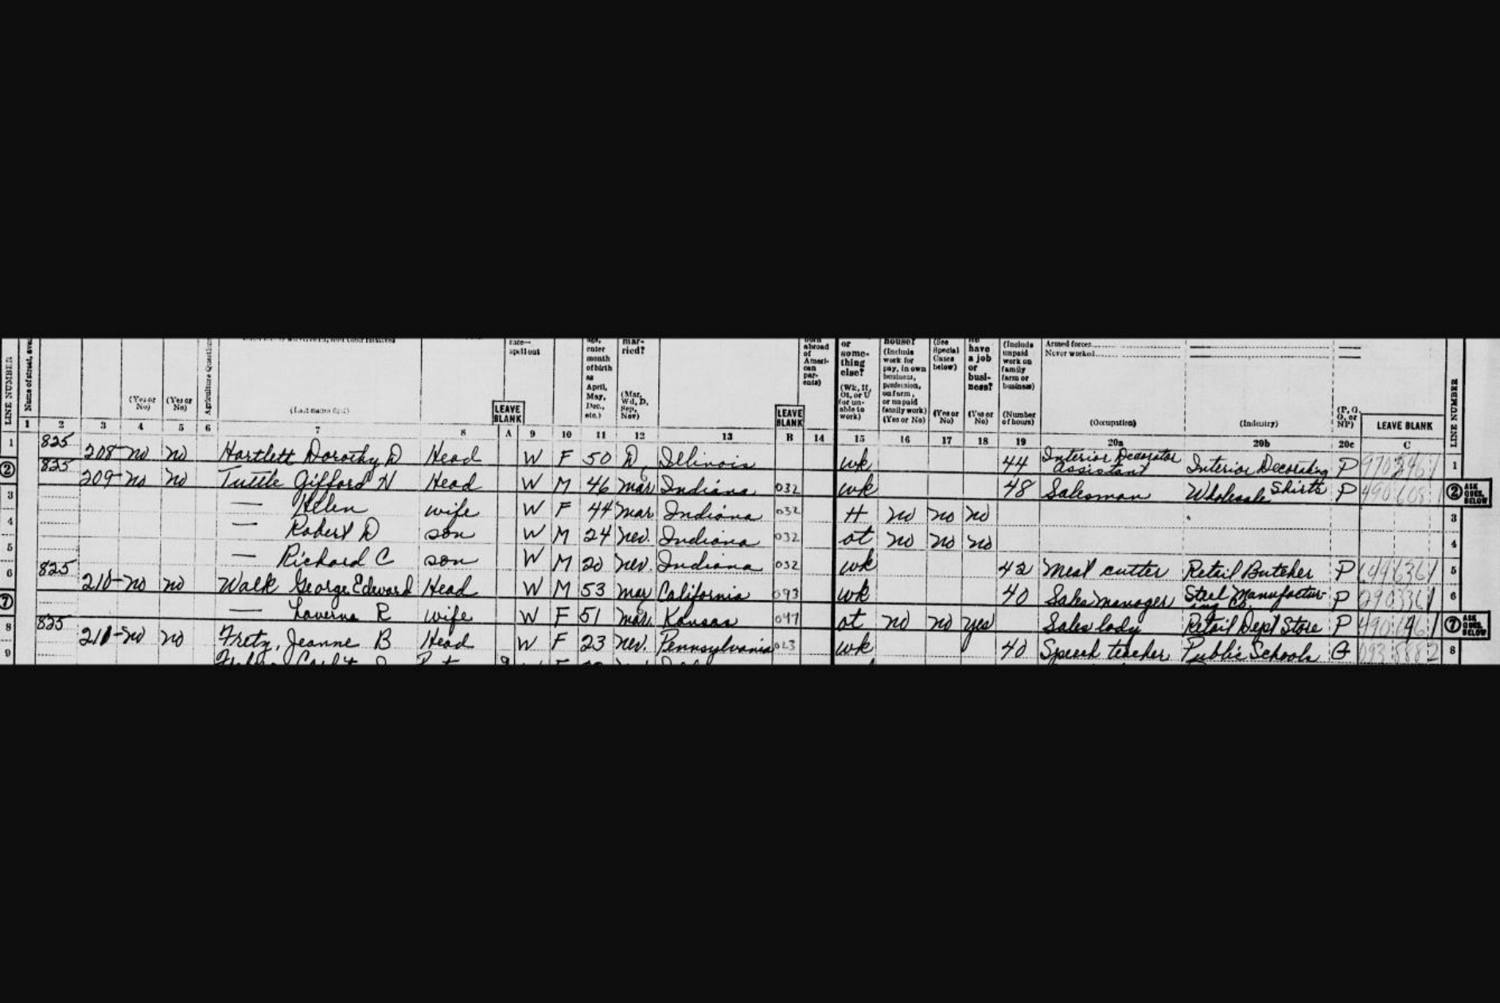 race— age, mar- born or house? (See he (Include Armed forces
spell out enter ried? abroad some- (Include Special have unpaid Never worked
month of thing work for Cases a job work on
of birth Ameri- else? pay, in own below) or family
as can business, busi- farm or
April, par- profession, ness? business)
LINE NUMBER Name of street, (Yes or No) (Yes or No) Agriculture Questions (Last name first) May, (Mar, ents) (Wk, H, on farm, LINE NUMBER
Dec., Wd, D, Ot, or U or unpaid
etc.) Sep, for un- family work) (Yes or (Yes or (Number (P, G,
LEAVE BLANK Nev) LEAVE BLANK able to work) (Yes or No) No) No) of hours) (Occupation) (Industry) O, or NP) LEAVE BLANK
1 2 3 4 5 6 7 8 A 9 10 11 12 13 B 14 15 16 17 18 19 20a 20b 20c C
1 825 208 no no Hartlett Dorothy D Head W F 50 D Illinois wk 44 Interior Decorator Assistant Interior Decorating P 1
2 825 209 no no Tuttle Gifford N Head W M 46 mar Indiana 032 wk 48 Salesman Wholesale Shirts P 2 ASK QUES. BELOW
3 — Helen wife W F 44 mar Indiana 032 H no no no 3
4 — Robert D son W M 24 nev. Indiana 032 ot no no no 4
5 — Richard C son W M 20 nev. Indiana 032 wk 42 Meat cutter Retail Butcher P 5
6 825 210 no no Walk George Edward Head W M 53 mar California 093 wk 40 Sales manager Steel Manufacturing Co. P 6
7 — Laverna R wife W F 51 mar. Kansas 047 ot no no yes Sales lady Retail Dept Store P 7 ASK QUES. BELOW
8 825 211 no no Fretz, Jeanne B Head W F 23 nev. Pennsylvania 023 wk 40 Speech teacher Public Schools G 8
9